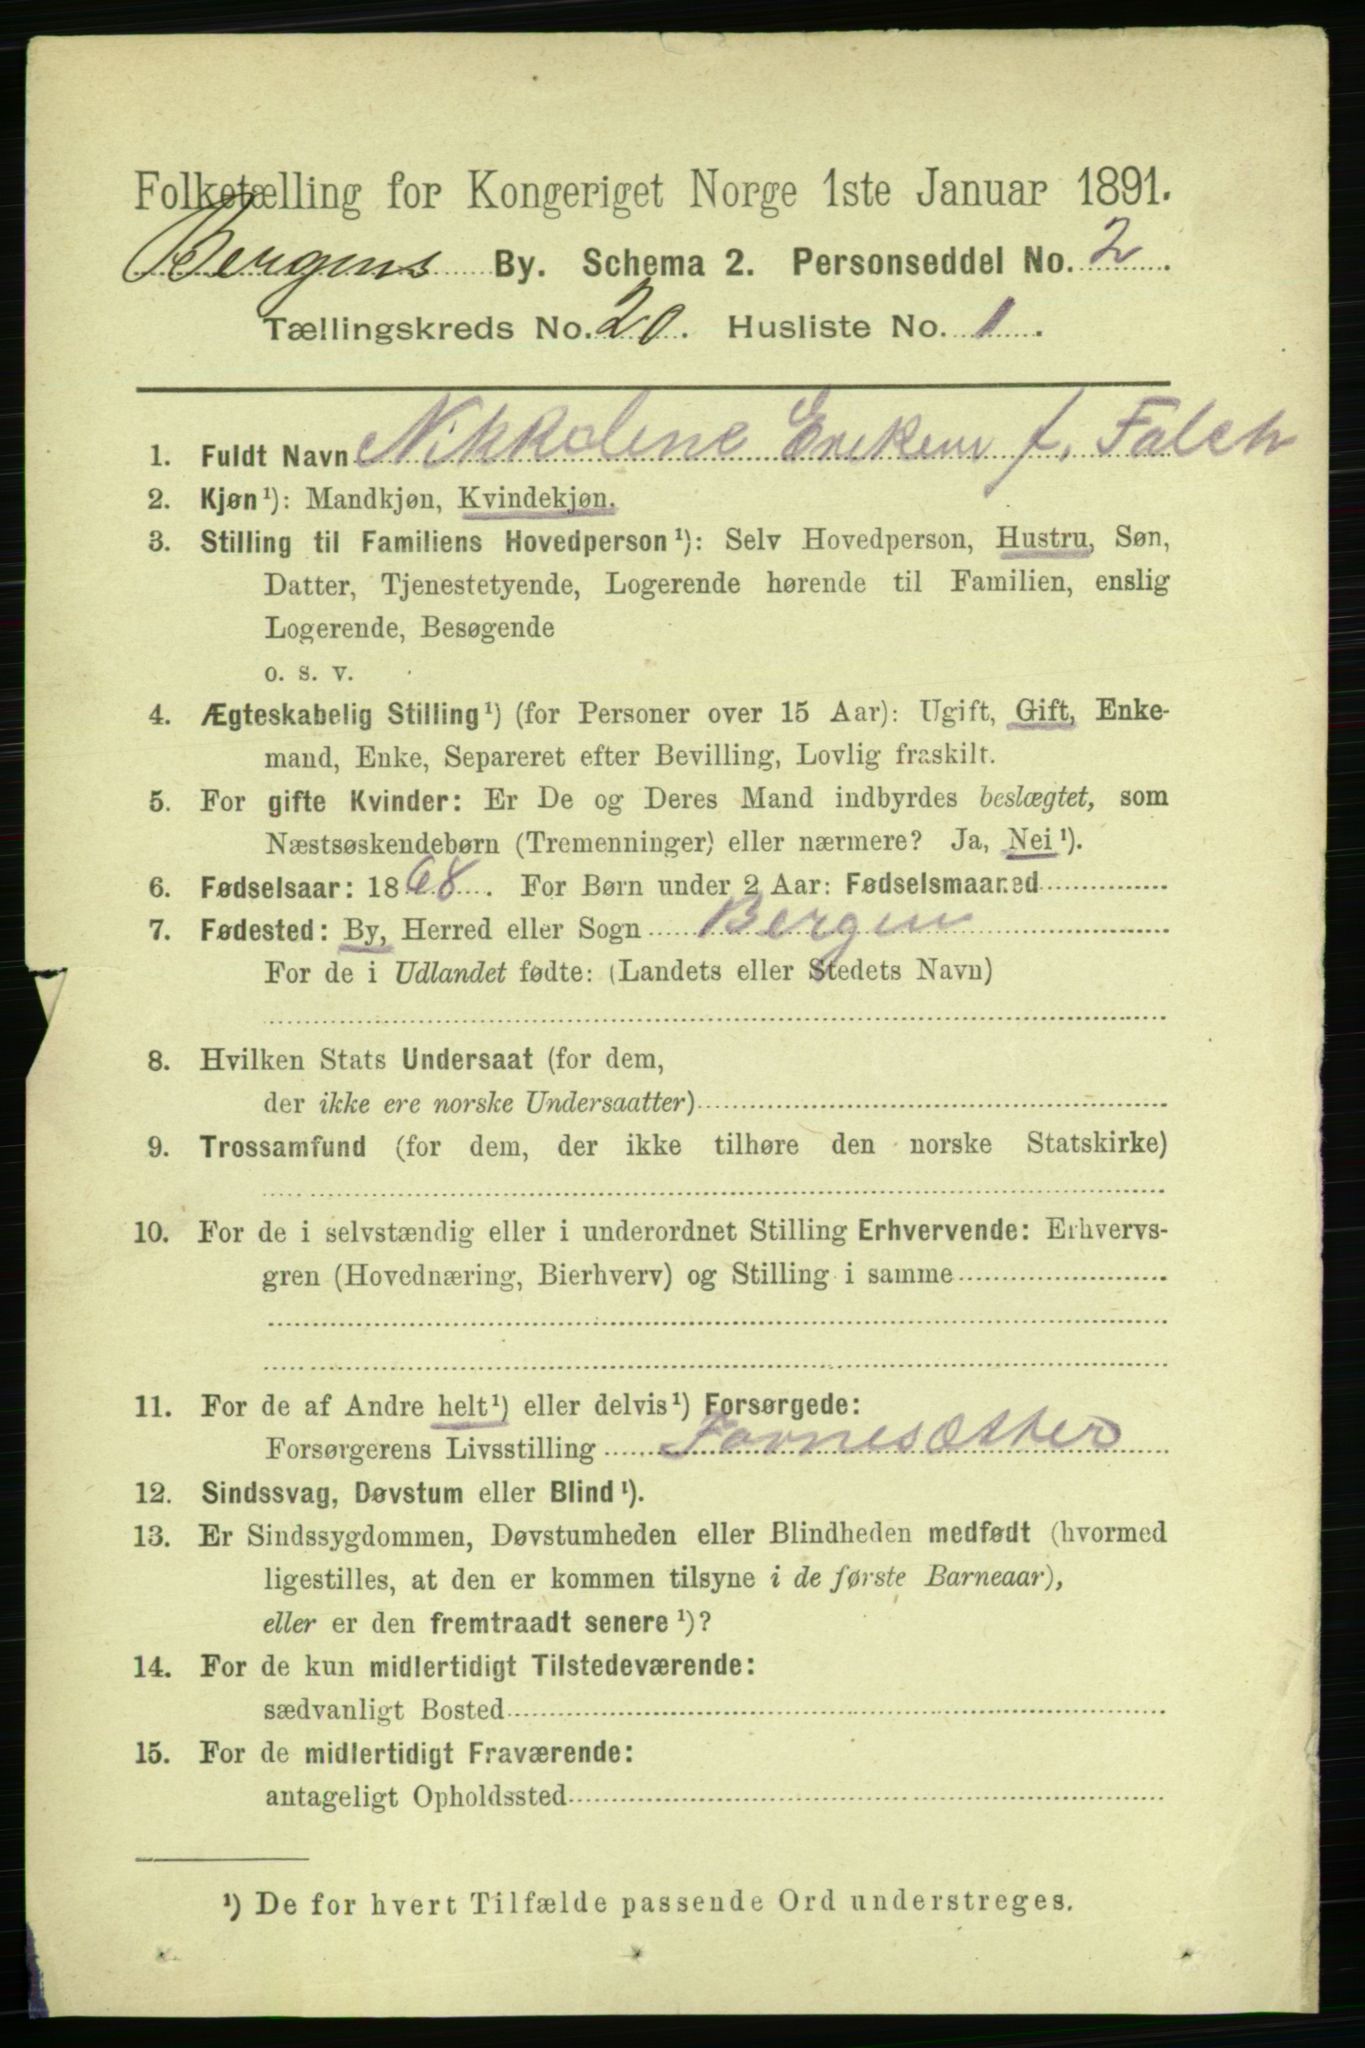 Folketælling for Kongeriget Norge 1ste Januar 1891.
Bergens By. Schema 2. Personseddel No. 2.
Tællingskreds No. 20. Husliste No. 1.
1. Fuldt Navn Nikkolene f. Falch
2. Kjøn¹): Mandkjøn, Kvindekjøn.
3. Stilling til Familiens Hovedperson¹): Selv Hovedperson, Hustru, Søn,
Datter, Tjenestetyende, Logerende hørende til Familien, enslig
Logerende, Besøgende
o. s. v.
4. Ægteskabelig Stilling¹) (for Personer over 15 Aar): Ugift, Gift, Enke-
mand, Enke, Separeret efter Bevilling, Lovlig fraskilt.
5. For gifte Kvinder: Er De og Deres Mand indbyrdes beslægtet, som
Næstsøskendebørn (Tremenninger) eller nærmere? Ja, Nei¹).
6. Fødselsaar: 1868. For Børn under 2 Aar: Fødselsmaaned
7. Fødested: By, Herred eller Sogn Bergen
For de i Udlandet fødte: (Landets eller Stedets Navn)
8. Hvilken Stats Undersaat (for dem,
der ikke ere norske Undersaatter)
9. Trossamfund (for dem, der ikke tilhøre den norske Statskirke)
10. For de i selvstændig eller i underordnet Stilling Erhvervende: Erhvervs-
gren (Hovednæring, Bierhverv) og Stilling i samme
11. For de af Andre helt¹) eller delvis¹) Forsørgede:
Forsørgerens Livsstilling
12. Sindssvag, Døvstum eller Blind¹).
13. Er Sindssygdommen, Døvstumheden eller Blindheden medfødt (hvormed
ligestilles, at den er kommen tilsyne i de første Barneaar),
eller er den fremtraadt senere¹)?
14. For de kun midlertidigt Tilstedeværende:
sædvanligt Bosted
15. For de midlertidigt Fraværende:
antageligt Opholdssted
¹) De for hvert Tilfælde passende Ord understreges.